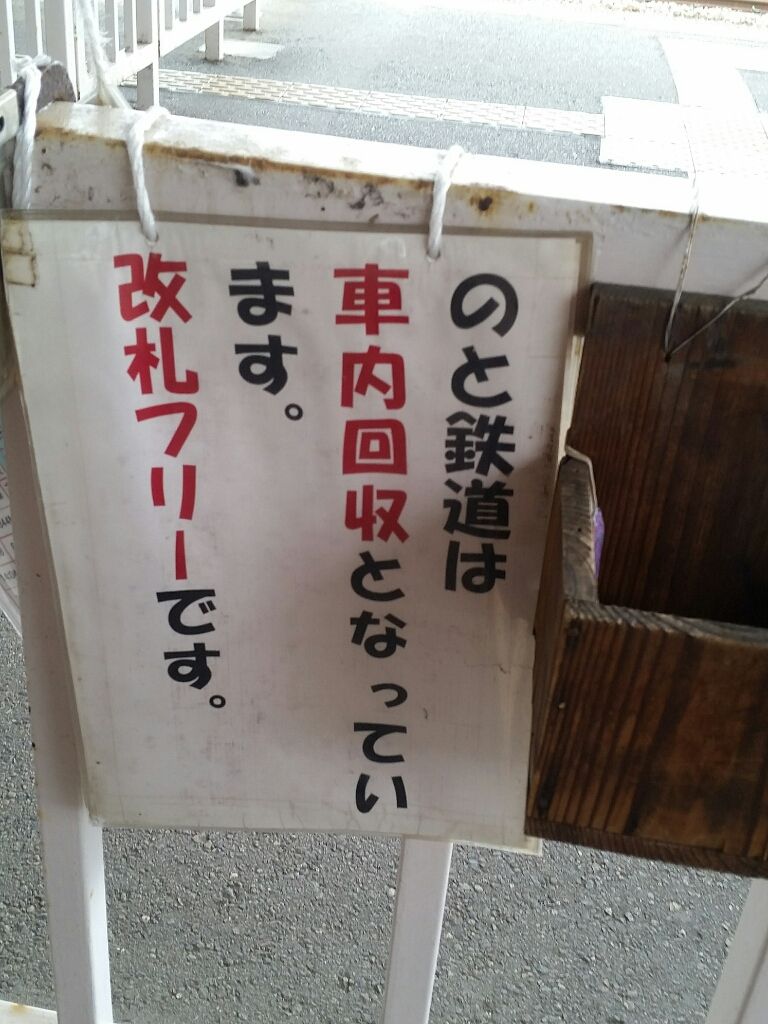 のと鉄道は
車内回収となってい
ます。
改札フリーです。